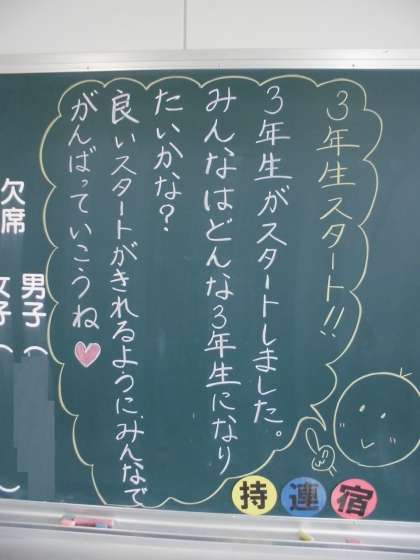 3年生スタート!!
3年生がスタートしました。
みんなはどんな3年生になり
たいかな?
良いスタートがきれるように、みんなで
がんばっていこうね
欠席
男子(
女子(
宿
連
持